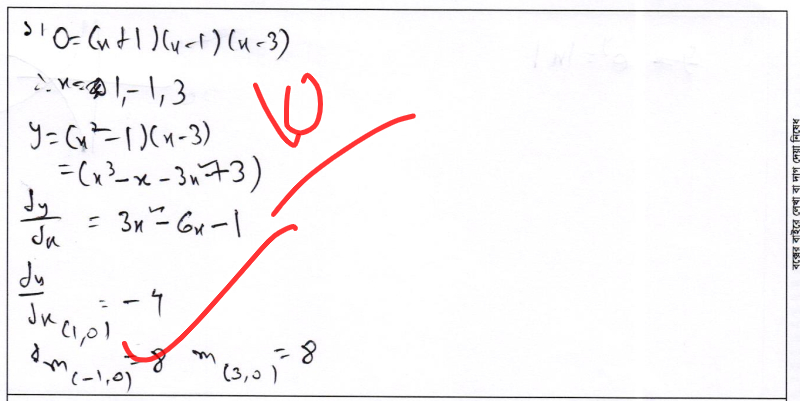 ১। 0=(x+1)(x-1)(x-3)
∴ x= 1,-1,3
y=(x²-1)(x-3)
=(x³-x-3x²+3)
dy/dx = 3x²-6x-1
dy/dx (1,0) = -4
m(-1,0) = 8 m(3,0) = 8
বক্সের বাইরে লেখা বা দাগ দেয়া নিষেধ